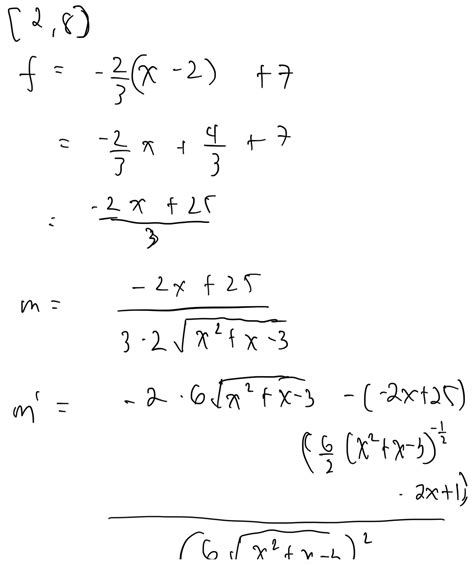 [2,8)
f = -2/3(x - 2) + 7
= -2/3 x + 4/3 + 7
= (-2x + 25)/3
m = (-2x + 25)/(3·2√(x²+x-3))
m' = (-2·6√(x²+x-3) - (-2x+25)
(6/2 (x²+x-3)^(-1/2)
· 2x+1))
(6√(x²+x-3))²